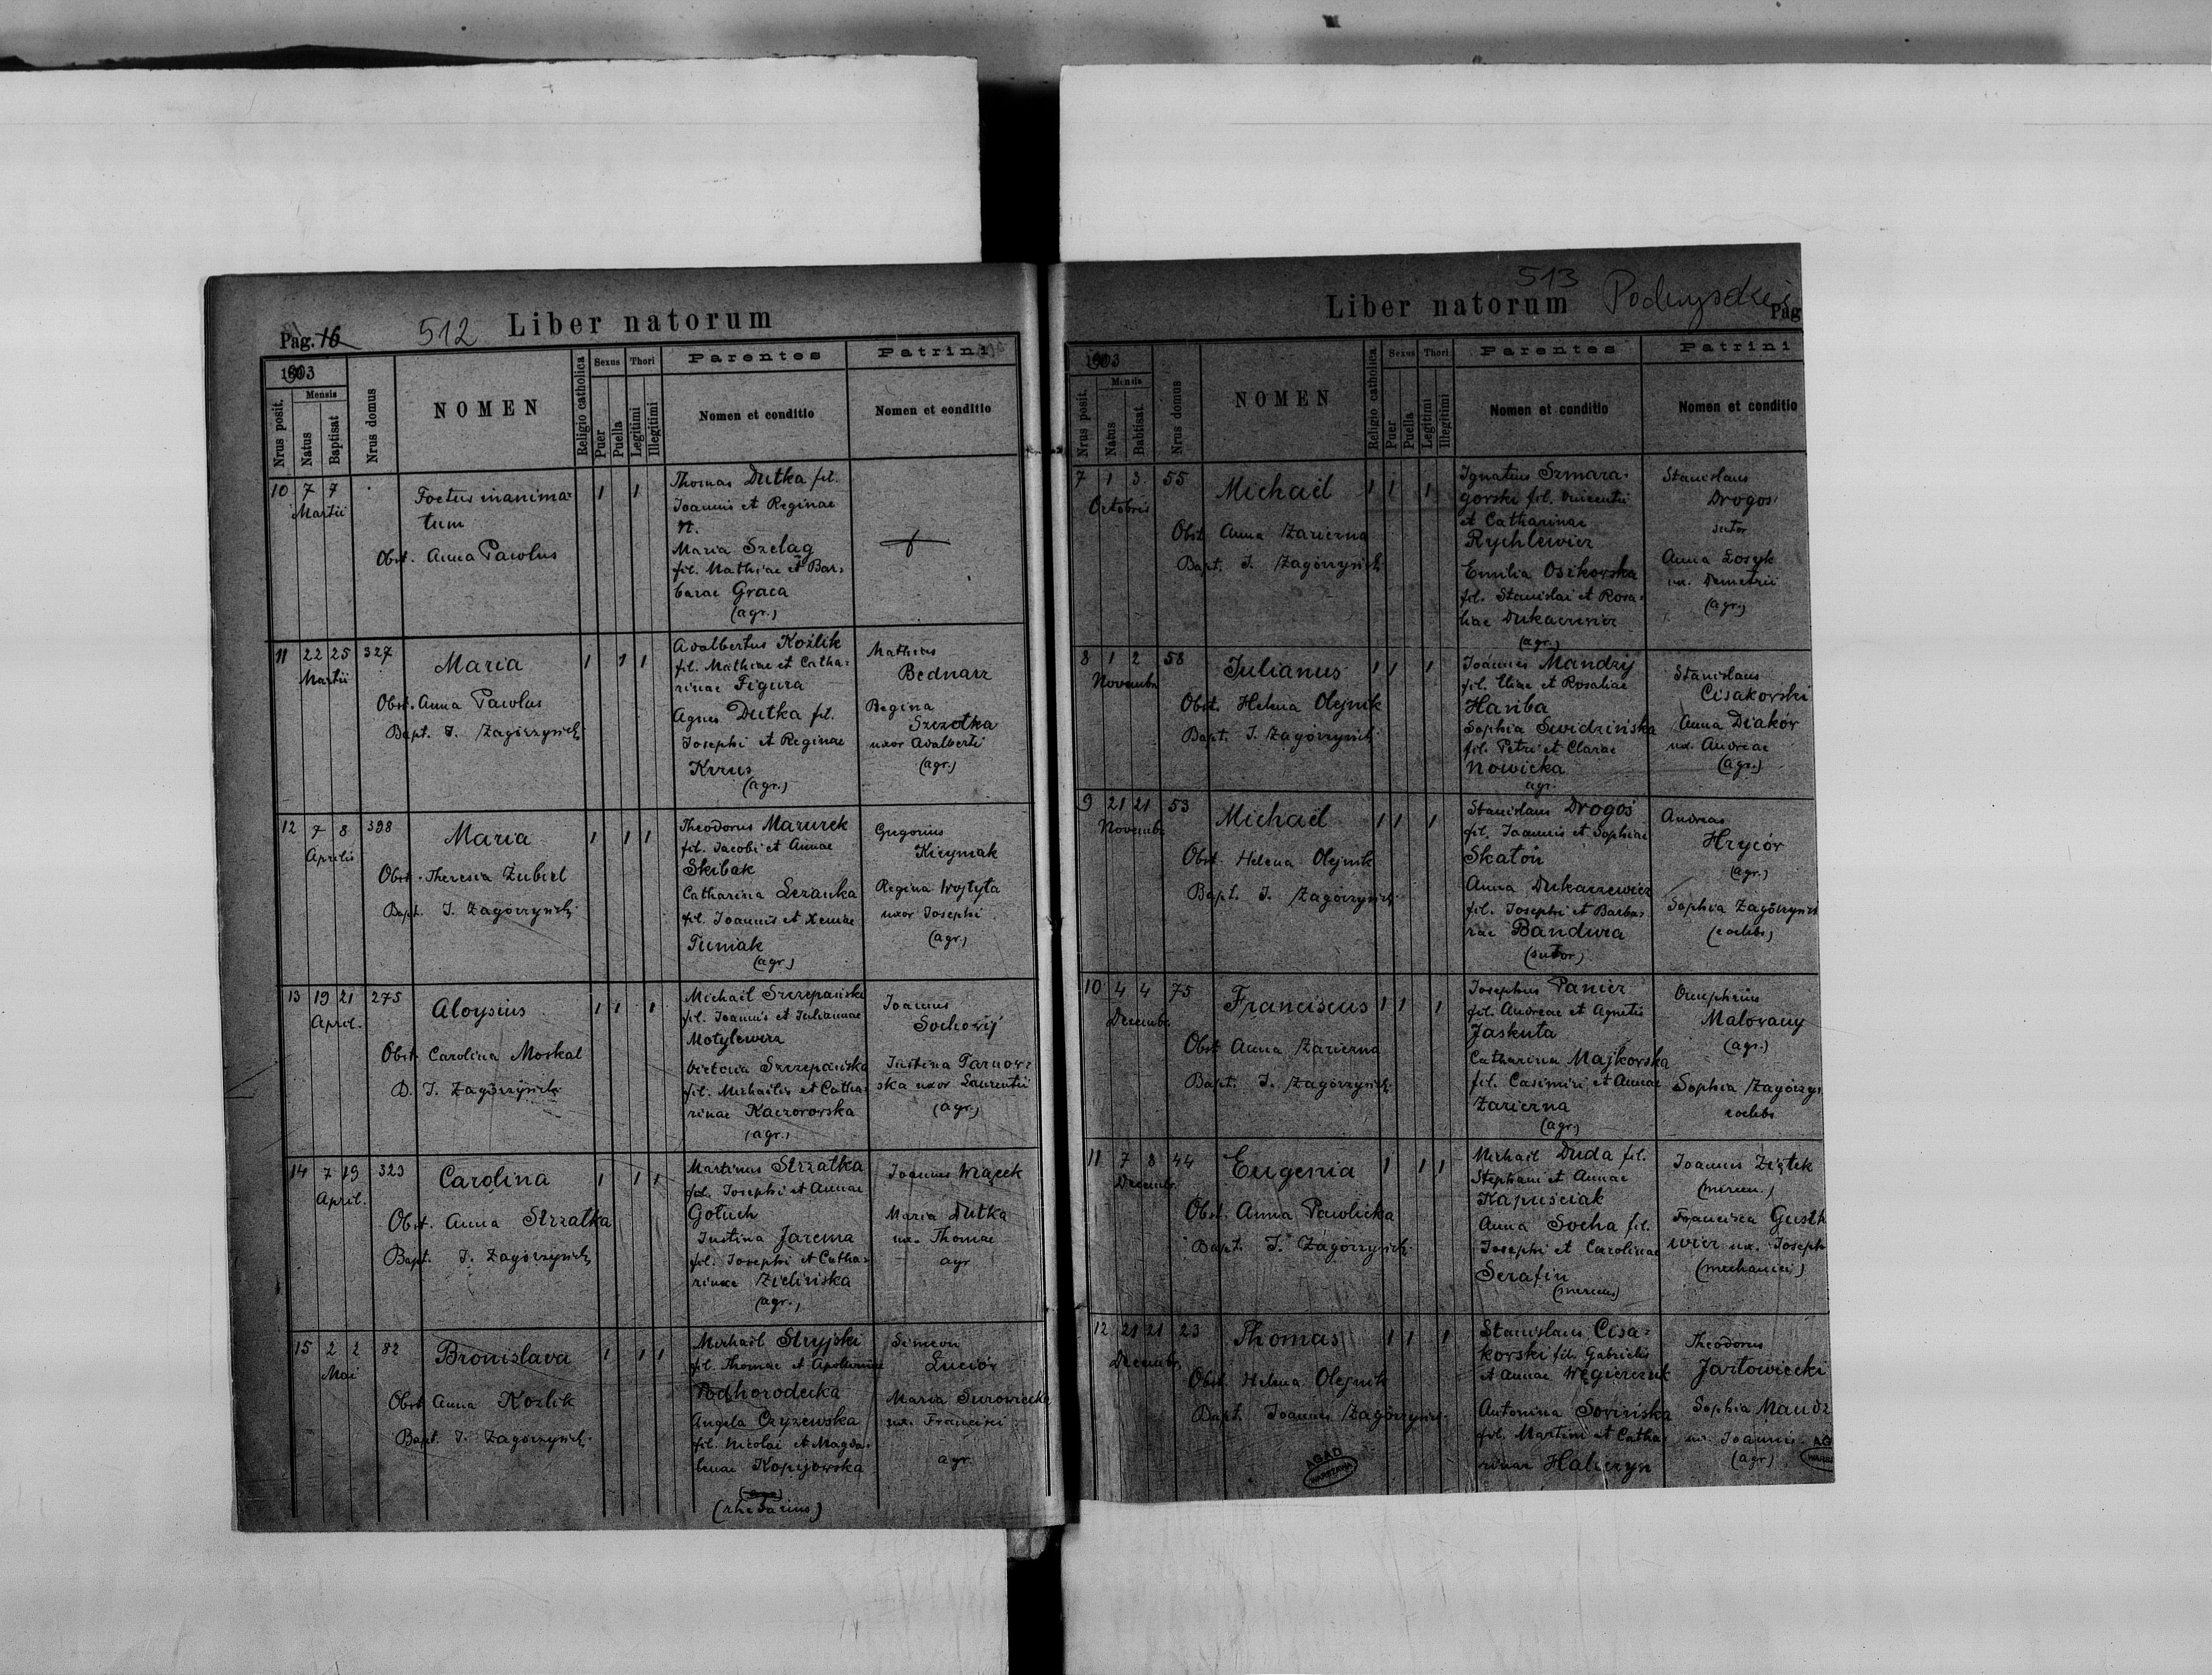 512 Liber natorum
Pag. 16
1903
Nrus posit.
Mensis
Natus
Baptisat
Nrus domus
NOMEN
Religio catholica
Sexus
Puer
Puella
Thori
Legitimi
Illegitimi
Parentes
Nomen et conditio
Patrini
Nomen et conditio
10 7 7
Martii
Foetus inanima=
tum
Obst. Anna Pawlus
1 1
Thomas Dutka fil.
Joannis et Reginae
N.
Maria Szeląg
fil. Mathiae et Bar=
barae Graca
(agr.)
11 22 25 327
Martii
Maria
Obst. Anna Pawlus
Bapt. J. Zagórzycki
1 1 1
Adalbertus Kozlik
fil. Mathiae et Catha=
rinae Figura
Agnes Dutka fil.
Josephi et Reginae
Kurus
(agr.)
Mathias
Bednarz
Regina
Szczotka
uxor Adalberti
(agr.)
12 7 8 398
Aprilis
Maria
Obst. Theresia Zubiel
Bapt. J. Zagórzycki
1 1 1
Theodorus Mazurek
fil. Jacobi et Annae
Skibak
Catharina
fil. Joannis et Xeniae
Tumiak
(agr.)
Gregorius
Kicyniak
Regina Wojtyła
uxor Josephi
(agr.)
13 19 21 275
April.
Aloysius
Obst. Carolina Moskal
D. J. Zagórzycki
1 1 1
Michaël Szczepański
fil. Joannis et Julianae
Motylewicz
Victoria Szczepańska
fil. Michaëlis et Catha=
rinae Kaczorowska
(agr.)
Joannes
Sochowij
Justina Tarnow=
ska uxor Laurentii
(agr.)
14 7 19 323
April.
Carolina
Obst. Anna Strzałka
Bapt. J. Zagórzycki
1 1 1
Martinus Strzałka
fil. Josephi et Annae
Gołuch
Justina Jarema
fil. Josephi et Catha=
rinae Zielińska
(agr.)
Joannes Wiącek
Maria Dutka
ux. Thomae
agr
15 2 2 82
Mai
Bronislava
Obst. Anna Kozlik
Bapt. J. Zagórzycki
1 1 1
Michaël Stryjski
fil. Thomae et Apolloniae
Podhorodecka
Angela Czyżewska
fil. Nicolai et Magda=
lenae Kopijowska
Simeon
Łuciów
Maria Surowiecka
ux. Francisci
agr.
513
Liber natorum
Pag
1903
Nrus posit.
Mensis
Natus
Babtisat
Nrus domus
NOMEN
Religio catholica
Sexus
Puer
Puella
Thori
Legitimi
Illegitimi
Parentes
Nomen et conditio
Patrini
Nomen et conditio
7 1 3 55
Octobris
Michaël
Obst. Anna Zarzerna
Bapt. J. Zagórzycki
1 1 1
Ignatius Szmara=
gorski fil. Vincentii
et Catharinae
Rychlewicz
Emilia Osikovska
fil. Stanislai et Rosa=
liae Dukaczewicz
(agr.)
Stanislaus
Drogoś
sutor
Anna Łosyk
ux. Demetrii
(agr.)
8 1 2 58
Novembr.
Julianus
Obst. Helena Olejnik
Bapt. J. Zagórzycki
1 1 1
Joannes Mandzij
fil. Eliae et Rosaliae
Hańba
Sophia Swidzińska
fil. Petri et Clarae
Nowicka
agr.
Stanislaus
Cisakovski
Anna Diaków
ux. Andreae
(agr.)
9 21 21 53
Novembr.
Michaël
Obst. Helena Olejnik
Bapt. J. Zagórzycki
1 1 1
Stanislaus Drogoś
fil. Joannis et Sophiae
Skatón
Anna Dukaczewicz
fil. Josephi et Barba=
rae Bandura
(sutor)
Andreas
Hryców
(agr.)
Sophia Zagórzycki
(coelebs)
10 4 4 75
Decembr.
Franciscus
Obst. Anna Zarzerna
Bapt. J. Zagórzycki
1 1 1
Josephus Panicz
fil. Andreae et Agnetis
Jaskuła
Catharina Majkovska
fil. Casimiri et Annae
Zarzerna
(agr.)
Onuphrius
Malovany
(agr.)
Sophia Zagórzy
coelebs
11 7 8 44
Decembr.
Eugenia
Obst. Anna Pawlicka
Bapt. J. Zagórzycki
1 1 1
Michaël Duda fil.
Stephani et Annae
Kapuściak
Anna Socha fil.
Josephi et Carolinae
Serafin
Joannes Ziętek
Francisca
wicz ux. Joseph
(mechanici)
12 21 21 23
Decembr.
Thomas
Obst. Helena Olejnik
Bapt. Joannes Zagórzycki
1 1 1
Stanislaus Cisa=
kovski fil. Gabrielis
et Annae Węgierczuk
Antonina Sovińska
fil. Martini et Catha=
rinae Haliczyn
Theodorus
Jarłowiecki
Sophia Mandz
ux. Joannis
(agr.)
AGAD
WARSZAWA